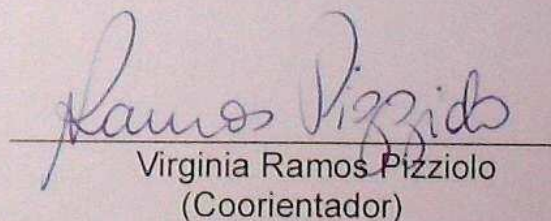 Ramos Pizziolo
Virginia Ramos Pizziolo
(Coorientador)